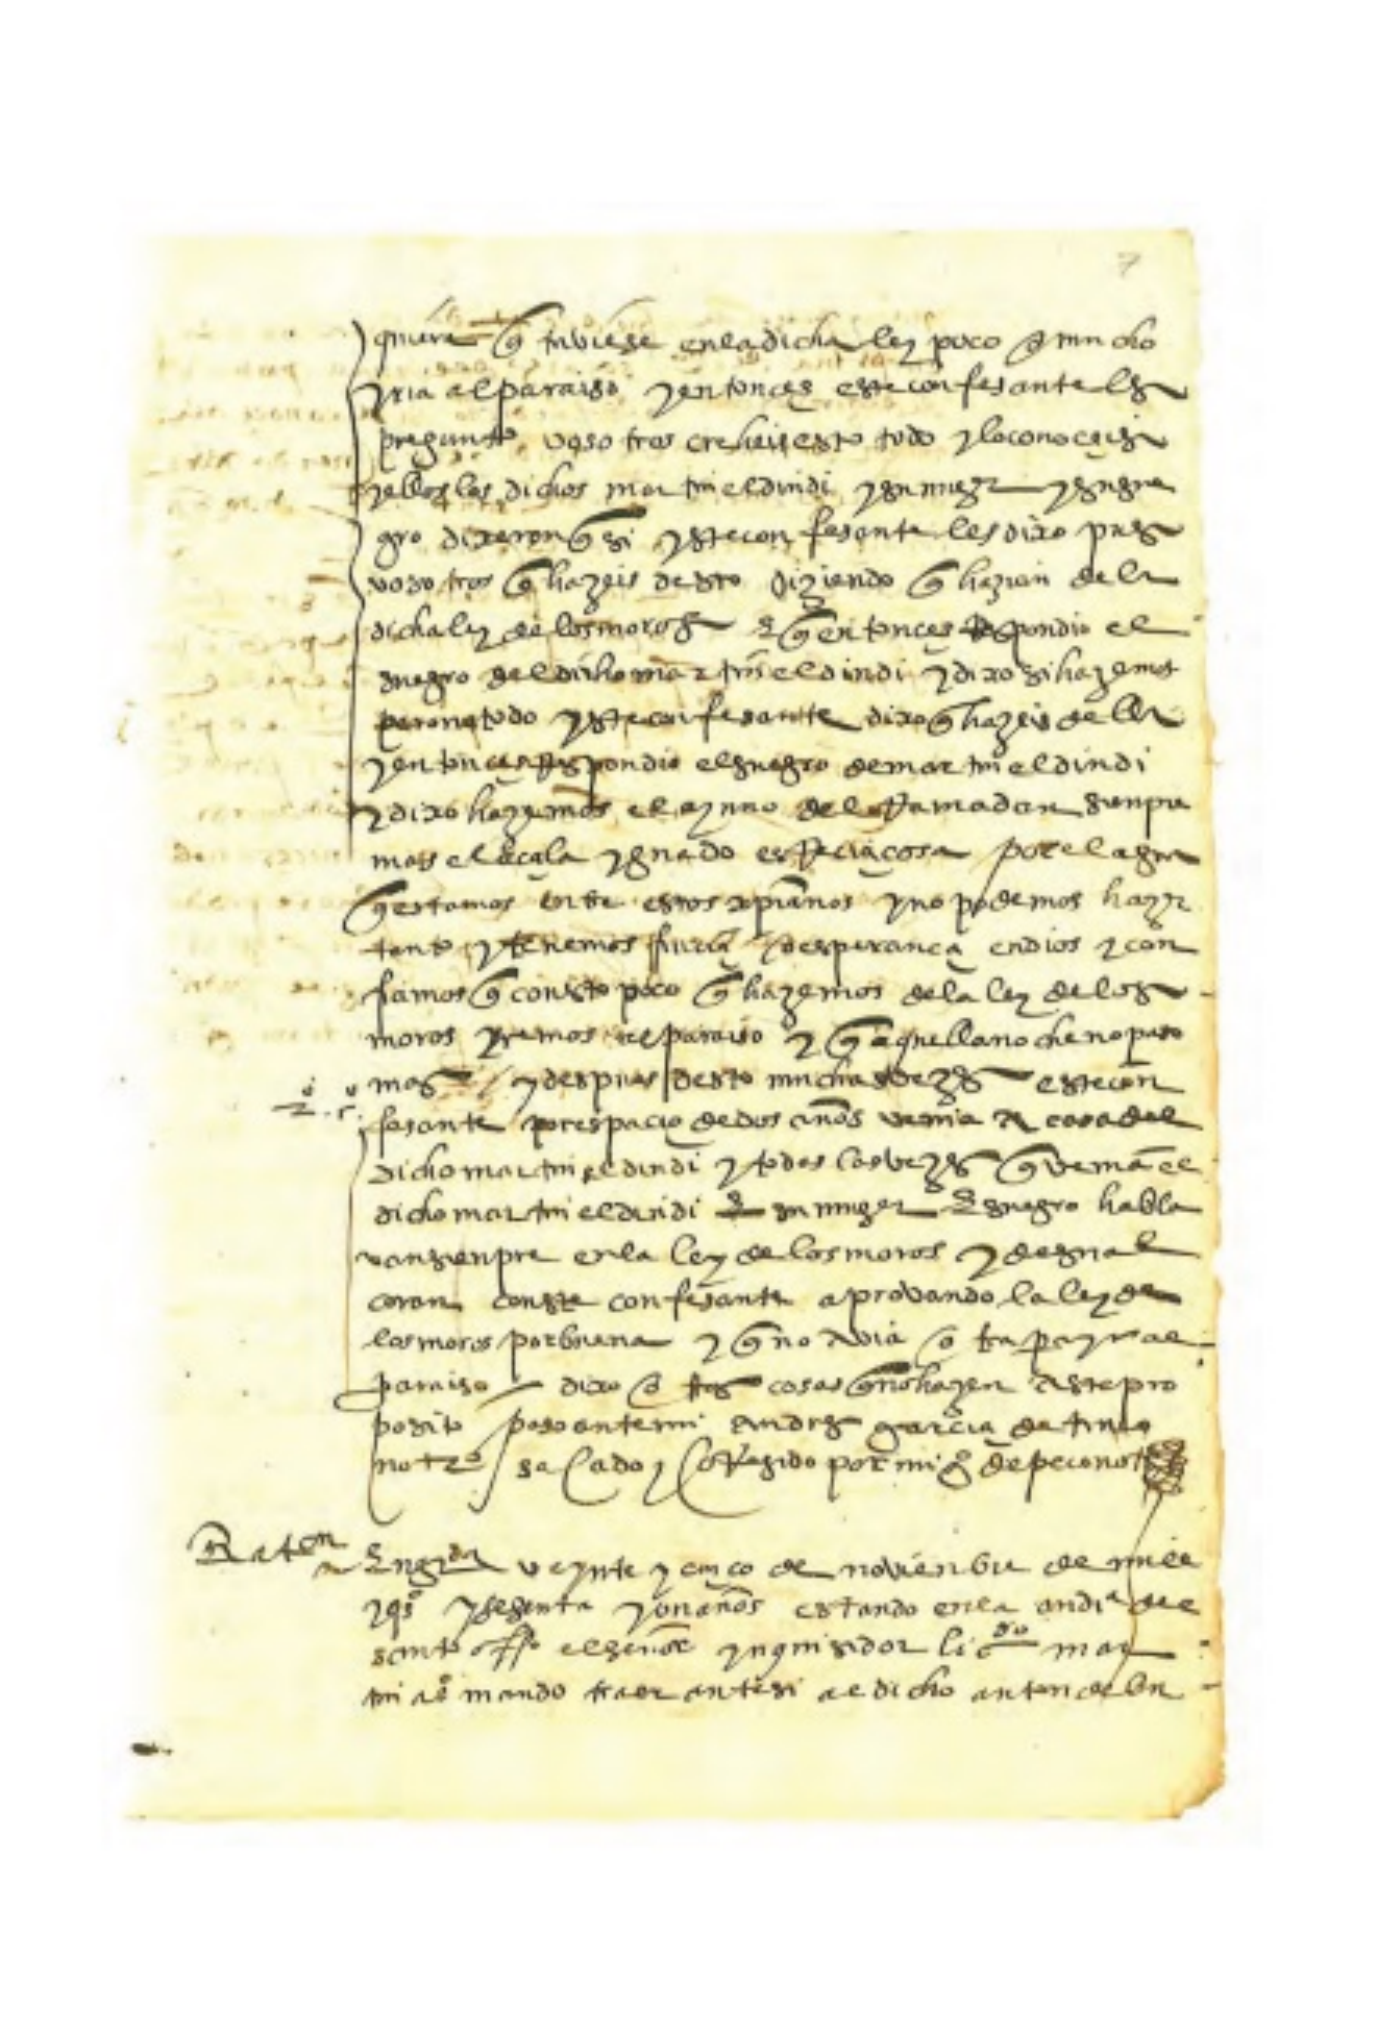 7
quiera que tubiese en la dicha ley poco o mucho
yria al paraiso y entonces este confesante les
pregunto vosotros creheis esto todo y lo conoceis
y ellos los dichos martin el dindi y su muger y su sue
gro dixeron que si y este confesante les dixo pues
vosotros que hazeis desto diziendo que hazian de la
dicha ley de los moros e que entonces Respondio el
suegro del dicho martin el dindi y dixo si hazemos
pero no todo y este confesante dixo que hazeis de lla
y entonces Respondio el suegro de martin el dindi
y dixo hazemos el ayuno del Ramadan sienpre
mas el açala y guado es Recia cosa por el agua
questamos entre estos xpianos y no podemos hazer
tanto y tenemos fiuzia y esperança en dios y con
fiamos que con esto poco que hazemos de la ley de los
moros yremos al paraiso y que aquella noche no paso
mas y despues desto muchas vezes este con
fesante por espacio de dos años venia a casa del
dicho martin el dindi y todas las vezes que venia el
dicho martin el dindi e su muger e suegro habla
van sienpre en la ley de los moros y de su al
coran con este confesante aprovando la ley de
los moros por buena y que no avia otra pa yr al
paraiso dixo otras cosas que no hazen a este pro
posito paso ante mi andres garcia de tineo
notº sacado y coRegido por mi gº de
Raten
En grda veynte y cinco de novienbre de mill
y qºs y sesenta y un años estando en la audiª del
santo offº el señor ynquisidor licdo mar
tin aº mando traer ante si al dicho anton de bu